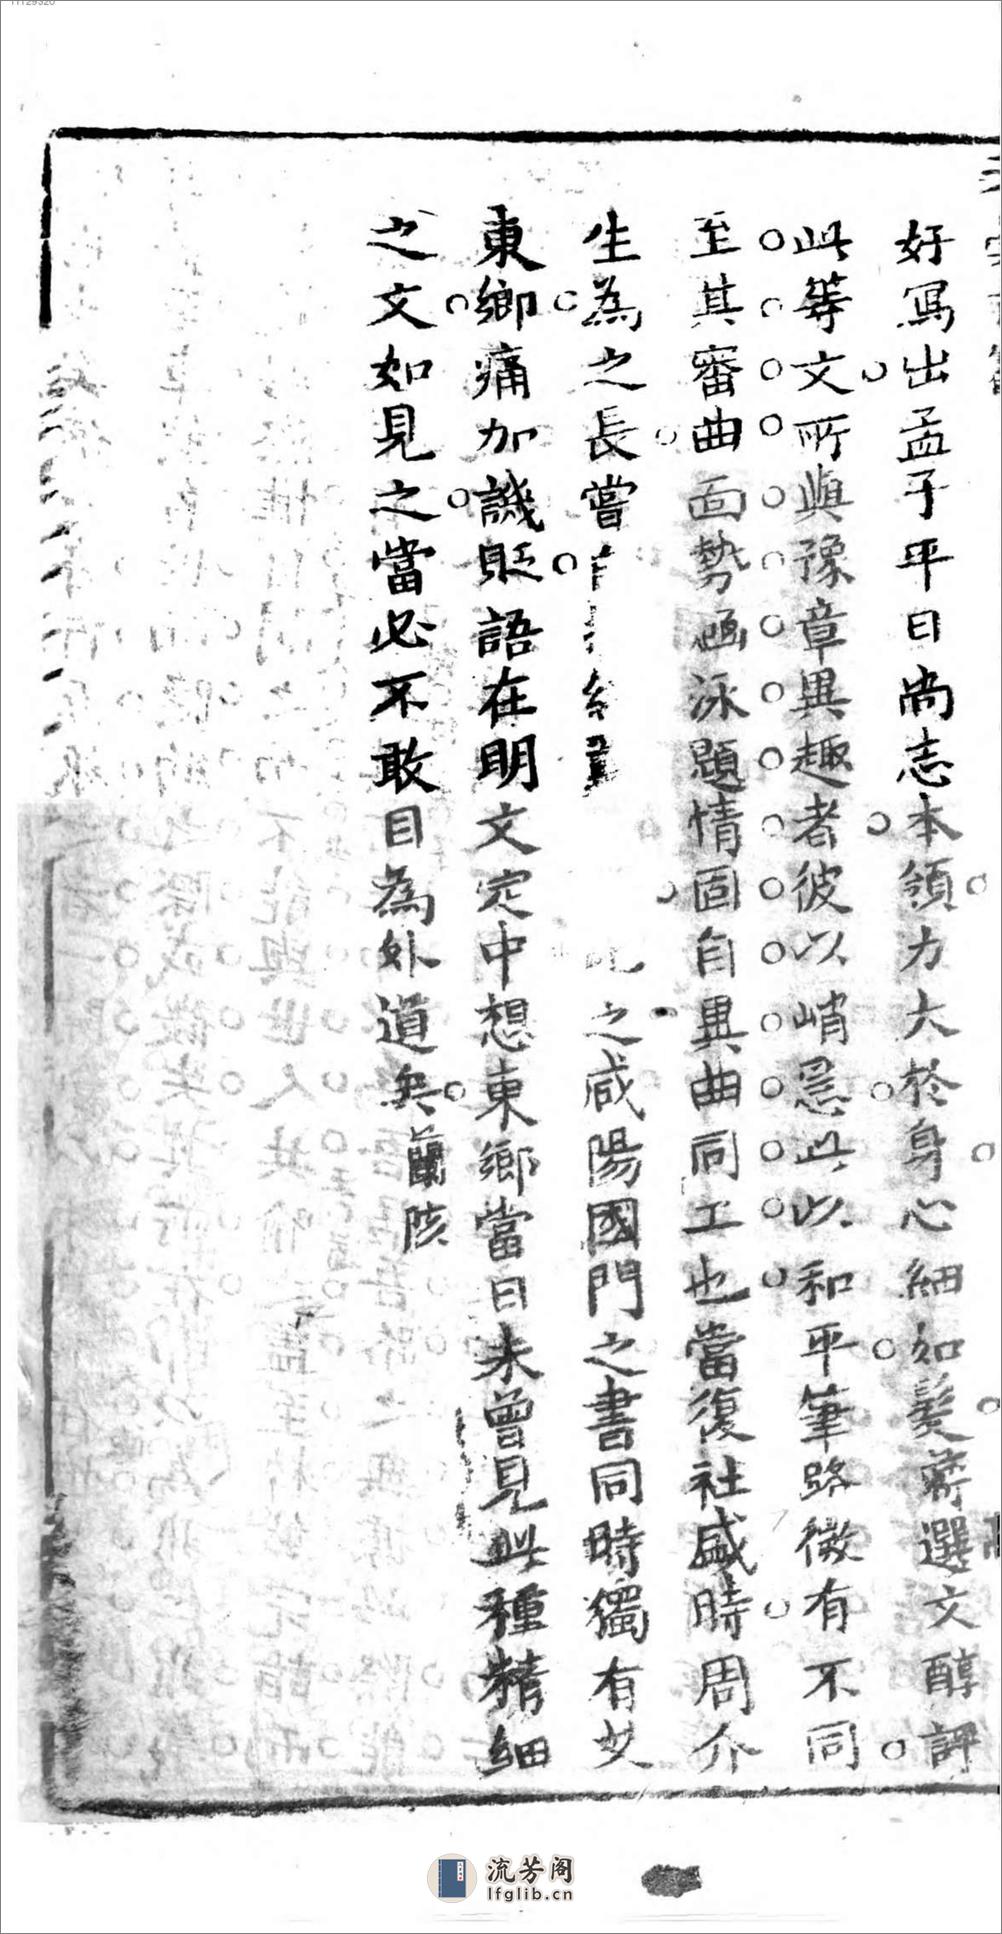 好寫出孟子平日尚志本領力大於身心細如髮蔣選文醇評
此等文所與豫章異趣者彼以峭急此以和平筆路微有不同
至其審曲面勢涵泳題情固自異曲同工也當復社盛時周介
生為之長嘗之咸陽國門之書同時獨有艾
東鄉痛加譏貶語在明文定中想東鄉當日未曾見此種精細
之文如見之當必不敢目為外道矣蘭陔
流芳阁
lfglib.cn